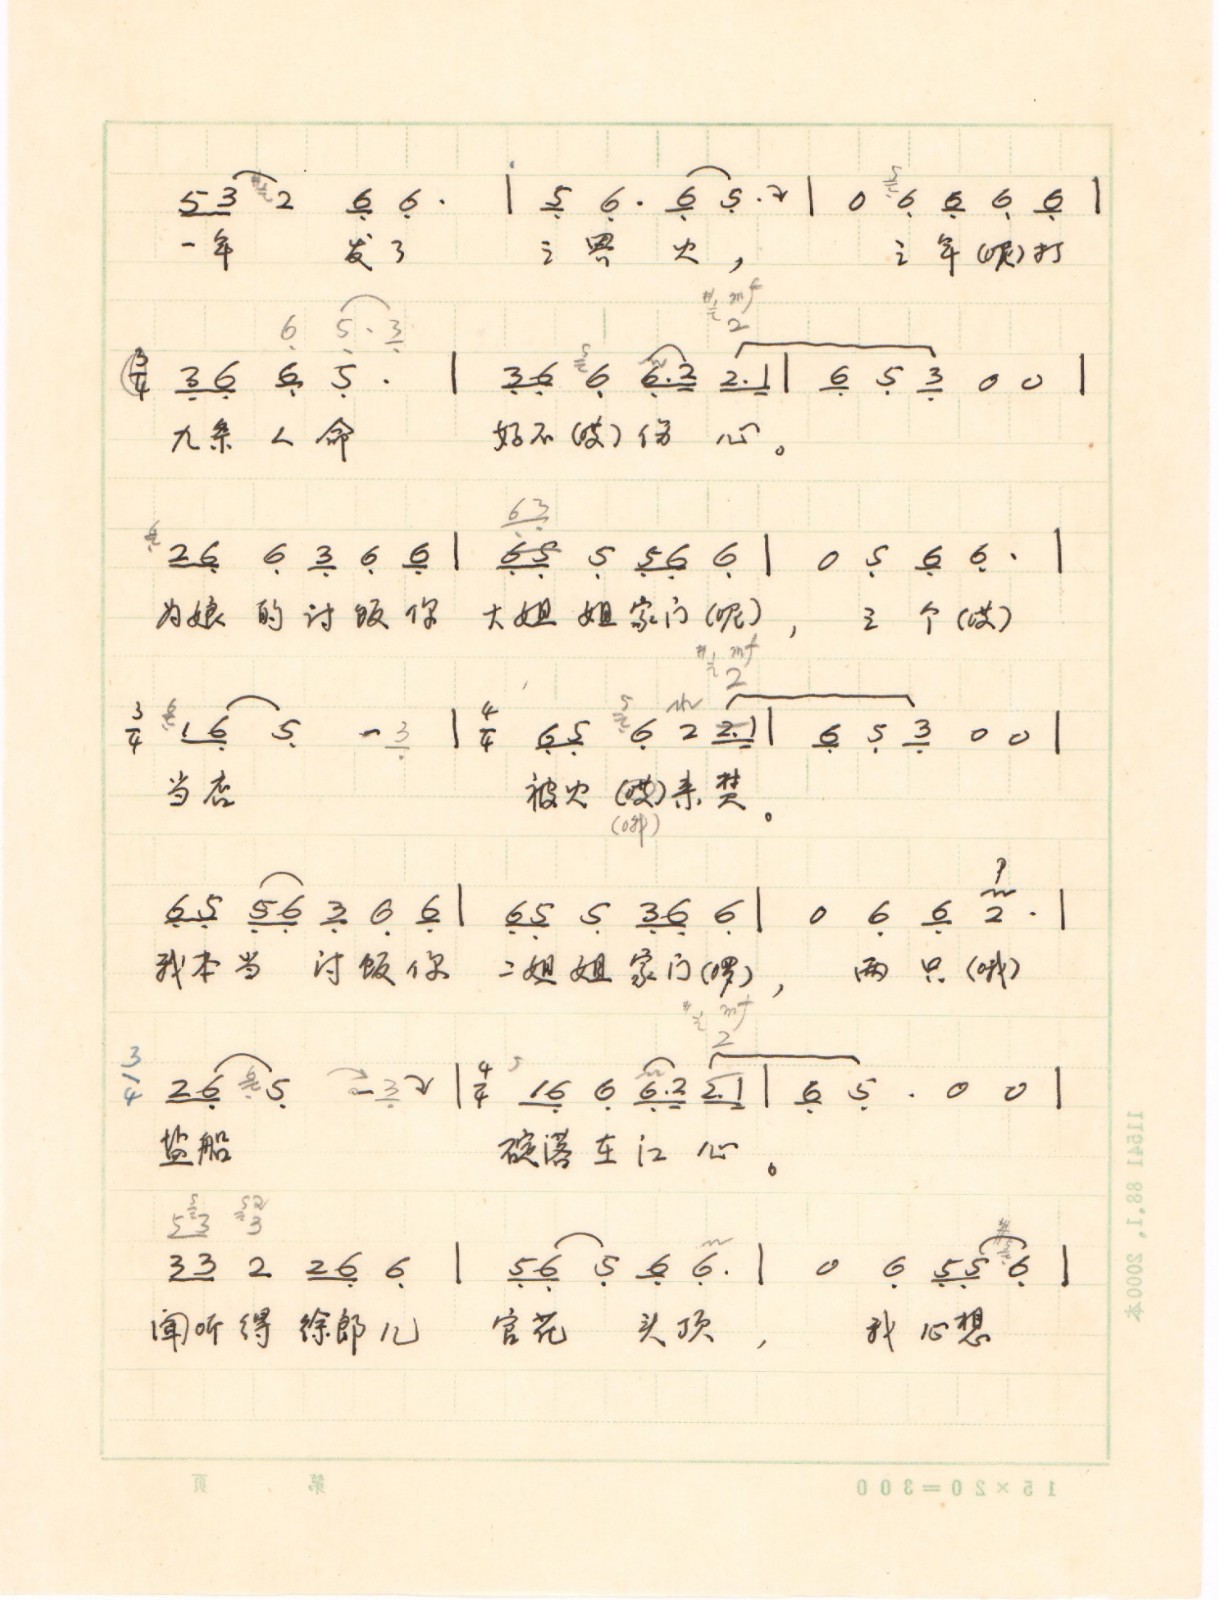 5 3 2 6 6 · | 5 6 · 6 5 · | 0 6 6 6 6 |
一年 发了 三界火， 三年(呢)打
6 5 · 3
mf 2
3/4 3 6 6 5 · | 3 6 6 6 · 2 2 · 1 | 6 5 3 0 0 |
九条人命 好不(哎)伤心。
6 3
2 6 6 3 6 6 | 6 5 5 5 6 6 | 0 5 6 6 · |
为娘的讨饭你 大姐姐家门(呢)， 三个(哎)
mf 2
3/4 1 6 5 - 3 | 4/4 6 5 6 2 2 · 1 | 6 5 3 0 0 |
当店 被火(哎)来焚。
(哦)
6 5 5 6 3 6 6 | 6 5 5 3 6 6 | 0 6 6 2 · |
我本当 讨饭你 二姐姐家门(啰)， 两只(哦)
mf 2
3/4 2 6 5 - 3 | 4/4 1 6 6 6 · 2 2 · 1 | 6 5 · 0 0 |
盐船 落在江心。
5 3 3
3 3 2 2 6 6 | 5 6 5 6 6 · | 0 6 5 5 6 |
闻听得徐郎儿 官花 头顶， 我心想
第 页
15×20=300
11541 88.1. 2000本